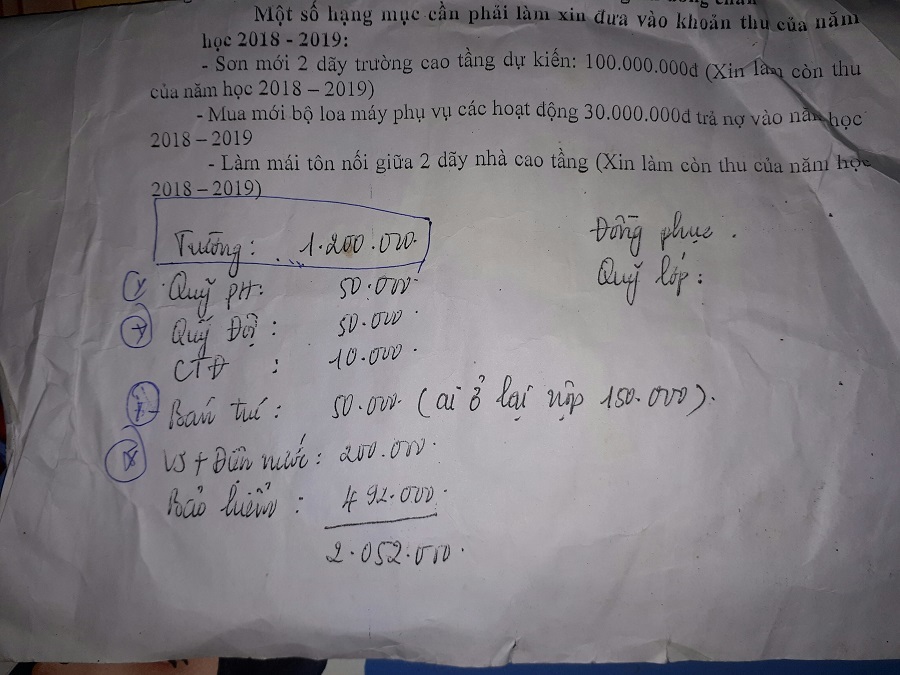 Một số hạng mục cần phải làm xin đưa vào khoản thu của năm
học 2018 - 2019:
- Sơn mới 2 dãy trường cao tầng dự kiến: 100.000.000đ (Xin làm còn thu
của năm học 2018 – 2019)
- Mua mới bộ loa máy phụ vụ các hoạt động 30.000.000đ trả nợ vào năm học
2018 – 2019
- Làm mái tôn nối giữa 2 dãy nhà cao tầng (Xin làm còn thu của năm học
2018 – 2019)
Trường: 1.200.000. Đồng phục.
Quỹ PH: 50.000. Quỹ lớp:
Quỹ Đội: 50.000.
CTĐ: 10.000.
Bán trú: 50.000. (ai ở lại nộp 150.000).
VS + Điện nước: 200.000.
Bảo hiểm: 492.000.
2.052.000.